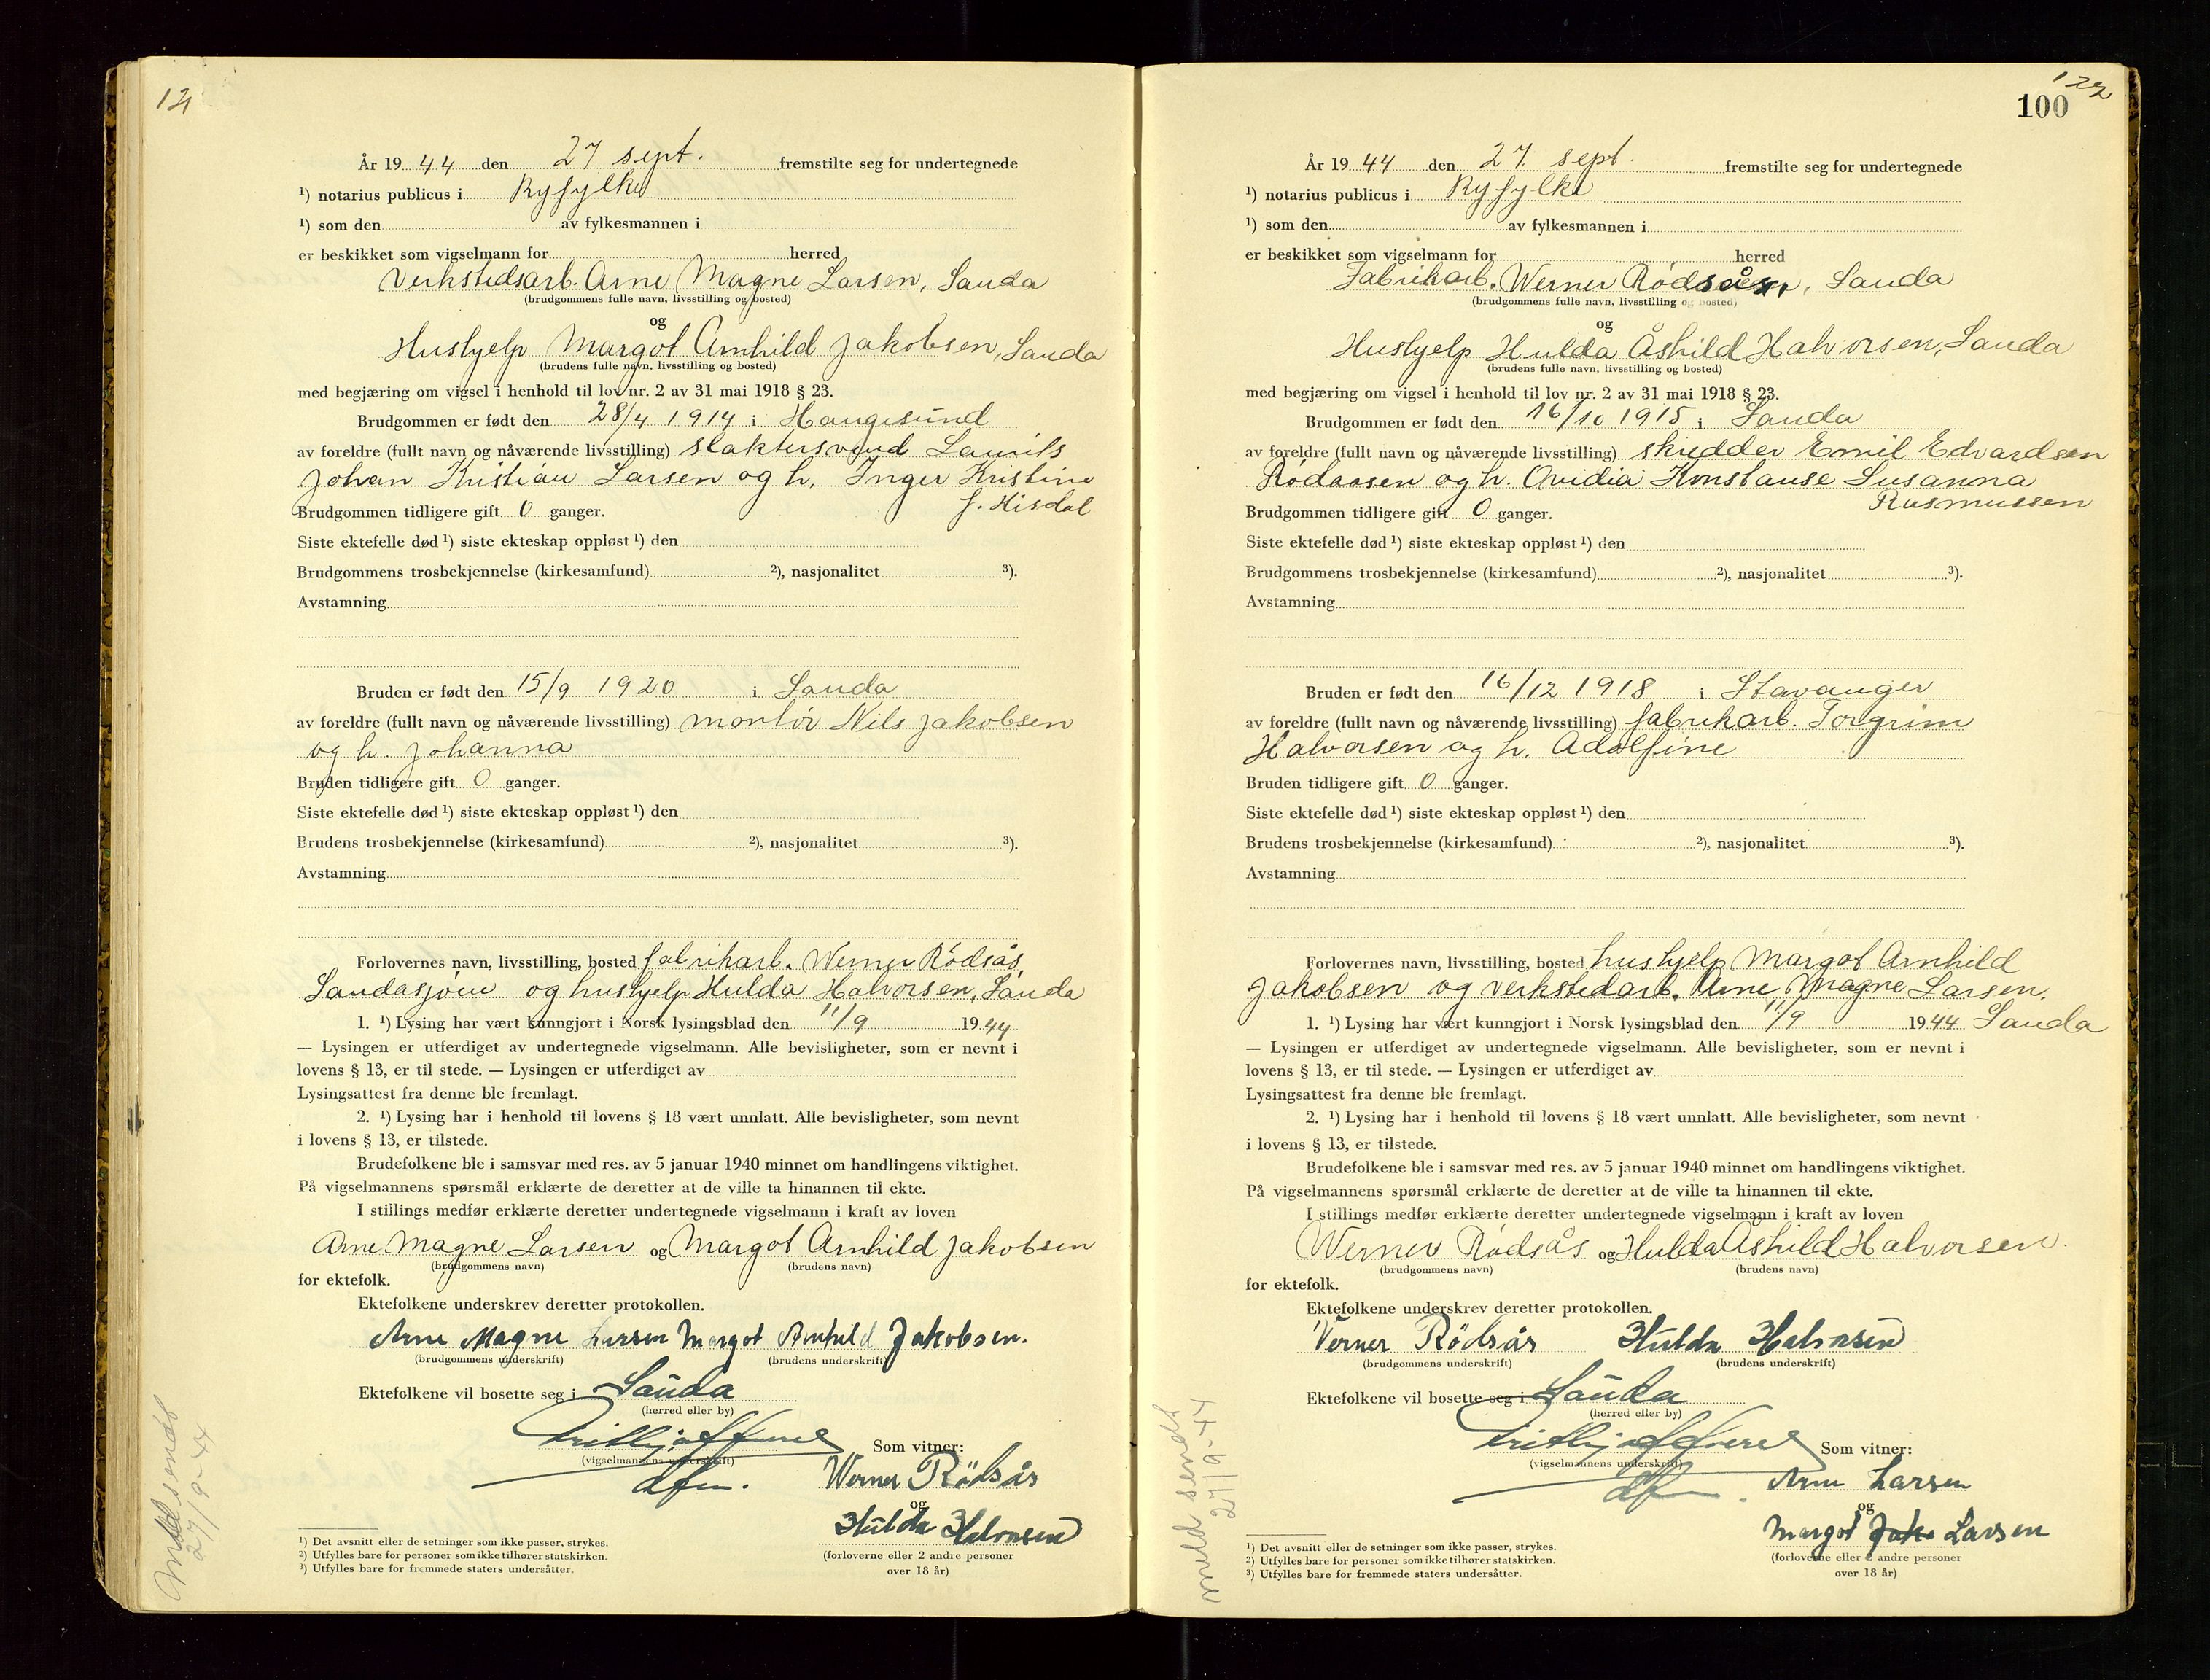 År 19 44 den 27 sept. fremstilte seg for undertegnede
¹) notarius publicus i Ryfylke
¹) som den av fylkesmannen i
er beskikket som vigselmann for herred
Verkstedsarb. Arne Magne Larsen, Sauda
(brudgommens fulle navn, livsstilling og bosted)
og
Hushjelp Margot Arnhild Jakobsen, Sauda
(brudens fulle navn, livsstilling og bosted)
med begjæring om vigsel i henhold til lov nr. 2 av 31 mai 1918 § 23.
Brudgommen er født den 28/4 1914 i Haugesund
av foreldre (fullt navn og nåværende livsstilling) slaktersvend Laurits
Johan Kristian Larsen og h. Inger Kristine
f. Hisdal
Brudgommen tidligere gift 0 ganger.
Siste ektefelle død ¹) siste ekteskap oppløst ¹) den
Brudgommens trosbekjennelse (kirkesamfund) ²), nasjonalitet ³).
Avstamning
Bruden er født den 15/9 1920 i Sauda
av foreldre (fullt navn og nåværende livsstilling) montør Nils Jakobsen
og h. Johanna
Bruden tidligere gift 0 ganger.
Siste ektefelle død ¹) siste ekteskap oppløst ¹) den
Brudens trosbekjennelse (kirkesamfund) ²), nasjonalitet ³).
Avstamning
Forlovernes navn, livsstilling, bosted fabrikarb. Werner Rödsås,
Saudasjøen og hushjelp Hulda Halvorsen, Sauda
1. ¹) Lysing har vært kunngjort i Norsk lysingsblad den 11/9 1944
— Lysingen er utferdiget av undertegnede vigselmann. Alle bevisligheter, som er nevnt i
lovens § 13, er til stede. — Lysingen er utferdiget av
Lysingsattest fra denne ble fremlagt.
2. ¹) Lysing har i henhold til lovens § 18 vært unnlatt. Alle bevisligheter, som nevnt
i lovens § 13, er tilstede.
Brudefolkene ble i samsvar med res. av 5 januar 1940 minnet om handlingens viktighet.
På vigselmannens spørsmål erklærte de deretter at de ville ta hinannen til ekte.
I stillings medfør erklærte deretter undertegnede vigselmann i kraft av loven
Arne Magne Larsen og Margot Arnhild Jakobsen
(brudgommens navn) (brudens navn)
for ektefolk.
Ektefolkene underskrev deretter protokollen.
Arne Magne Larsen Margot Arnhild Jakobsen.
(brudgommens underskrift) (brudens underskrift)
Ektefolkene vil bosette seg i Sauda
(herred eller by)
Som vitner:
(vigselmannens underskrift)
Werner Rödsås
og
Hulda Halvorsen
(forloverne eller 2 andre personer
over 18 år)
¹) Det avsnitt eller de setninger som ikke passer, strykes.
²) Utfylles bare for personer som ikke tilhører statskirken.
³) Utfylles bare for fremmede staters undersåtter.
Meld sendt
27/9-44
122
100
År 19 44 den 27. sept. fremstilte seg for undertegnede
¹) notarius publicus i Ryfylke
¹) som den av fylkesmannen i
er beskikket som vigselmann for herred
Fabrikarb. Werner Rødsås, Sauda
(brudgommens fulle navn, livsstilling og bosted)
og
Hushjelp Hulda Åshild Halvorsen, Sauda
(brudens fulle navn, livsstilling og bosted)
med begjæring om vigsel i henhold til lov nr. 2 av 31 mai 1918 § 23.
Brudgommen er født den 16/10 1915 i Sauda
av foreldre (fullt navn og nåværende livsstilling) skredder Emil Edvardsen
Rödaasen og h. Ovidia Konstanse Susanna
Rasmussen
Brudgommen tidligere gift 0 ganger.
Siste ektefelle død ¹) siste ekteskap oppløst ¹) den
Brudgommens trosbekjennelse (kirkesamfund) ²), nasjonalitet ³).
Avstamning
Bruden er født den 16/12 1918 i Stavanger
av foreldre (fullt navn og nåværende livsstilling) fabrikarb. Torgrim
Halvorsen og h. Adolfine
Bruden tidligere gift 0 ganger.
Siste ektefelle død ¹) siste ekteskap oppløst ¹) den
Brudens trosbekjennelse (kirkesamfund) ²), nasjonalitet ³).
Avstamning
Forlovernes navn, livsstilling, bosted hushjelp Margot Arnhild
Jakobsen og verkstedarb. Arne Magne Larsen,
1. ¹) Lysing har vært kunngjort i Norsk lysingsblad den 11/9 1944 Sauda
— Lysingen er utferdiget av undertegnede vigselmann. Alle bevisligheter, som er nevnt i
lovens § 13, er til stede. — Lysingen er utferdiget av
Lysingsattest fra denne ble fremlagt.
2. ¹) Lysing har i henhold til lovens § 18 vært unnlatt. Alle bevisligheter, som nevnt
i lovens § 13, er tilstede.
Brudefolkene ble i samsvar med res. av 5 januar 1940 minnet om handlingens viktighet.
På vigselmannens spørsmål erklærte de deretter at de ville ta hinannen til ekte.
I stillings medfør erklærte deretter undertegnede vigselmann i kraft av loven
Werner Rødsås og Hulda Åshild Halvorsen.
(brudgommens navn) (brudens navn)
for ektefolk.
Ektefolkene underskrev deretter protokollen.
Verner Rödsås Hulda Halvorsen
(brudgommens underskrift) (brudens underskrift)
Ektefolkene vil bosette seg i Sauda
(herred eller by)
Som vitner:
(vigselmannens underskrift)
Arne Larsen
og
Margot Jako Larsen
(forloverne eller 2 andre personer
over 18 år)
¹) Det avsnitt eller de setninger som ikke passer, strykes.
²) Utfylles bare for personer som ikke tilhører statskirken.
³) Utfylles bare for fremmede staters undersåtter.
meld sendt
27/9-44